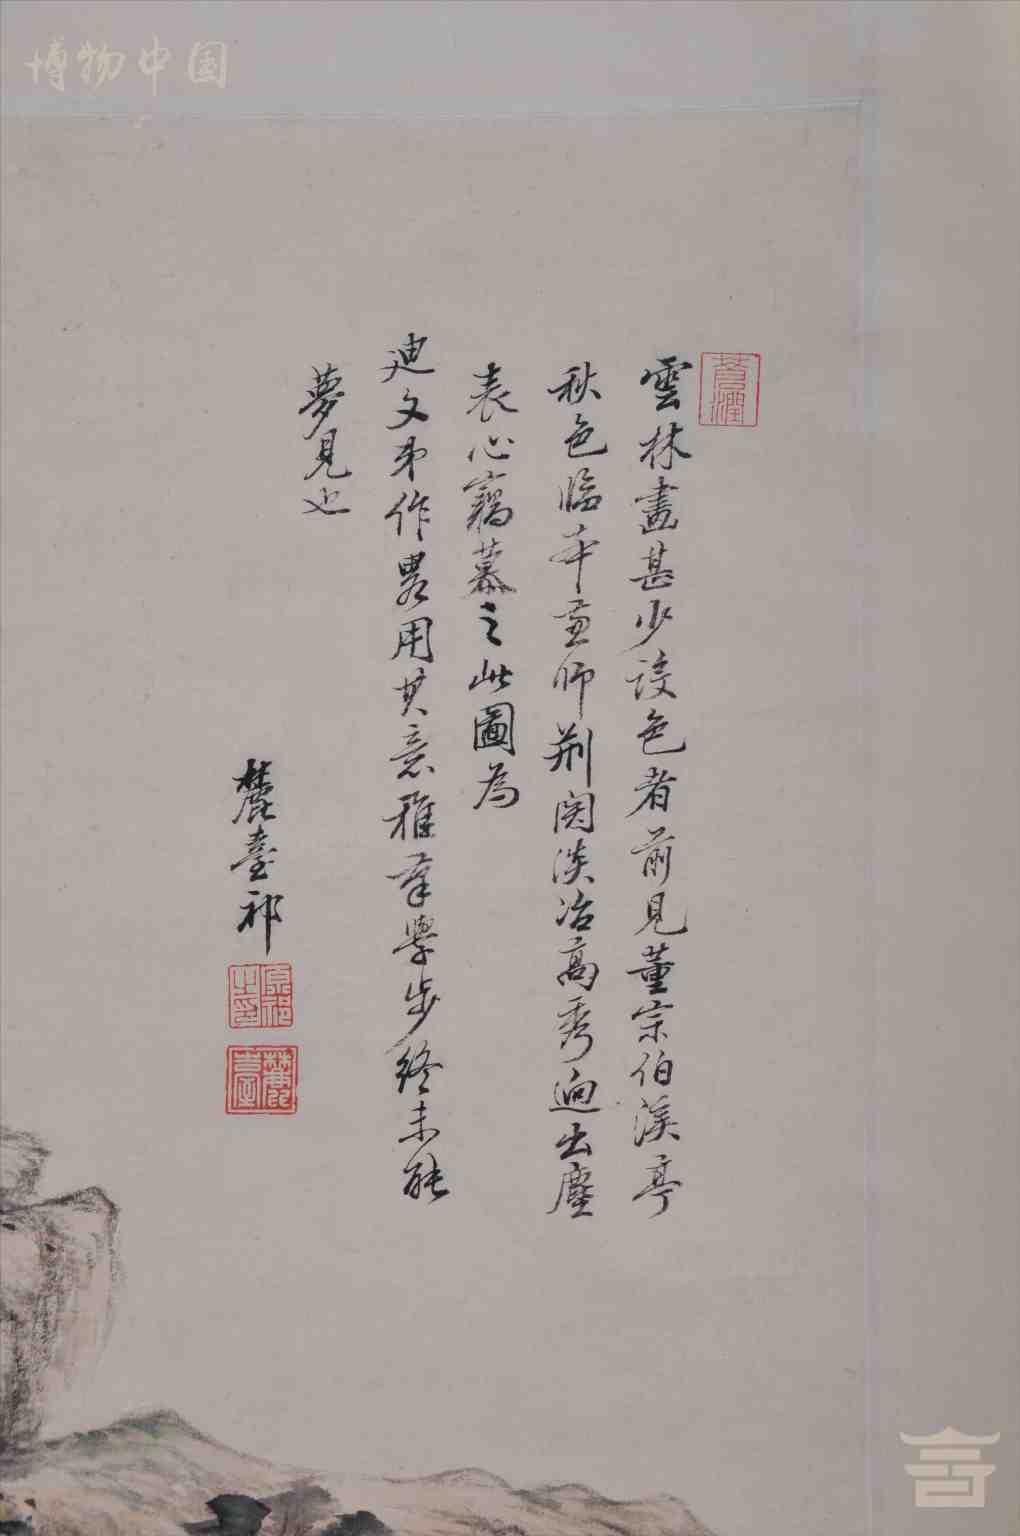 博物中国
雲林畫甚少設色者前見董宗伯溪亭
秋色臨本並師荆関淡冶高秀逈出塵
表心竊慕之此圖為
廸文弟作畧用其意雅羣學步終未能
夢見也
麓臺祁
蒼潤
原祁之印
麓臺